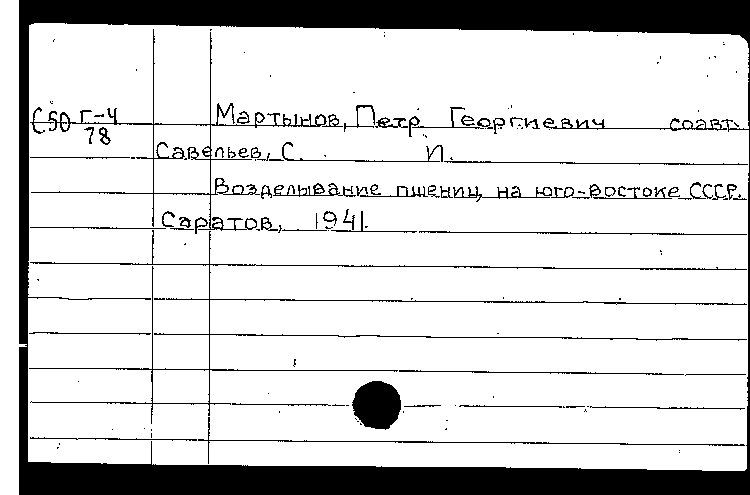 С50 Г-4 Мартынов, Петр Георгиевич соавт.
78
Савельев, С. И.
Возделывание пшениц на юго-востоке СССР.
Саратов, 1941.